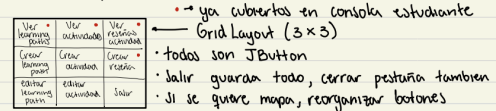 • → ya cubiertos en consola estudiante
← Grid Layout (3×3)
Ver learning paths •
Ver actividades •
Ver reseñas actividad •
Crear learning path
Crear actividad
Crear reseña •
editar learning path
editar actividad
Salir
• todos son JButton
• Salir guarda todo, cerrar pestaña tambien
• Si se quiere mapa, reorganizar botones